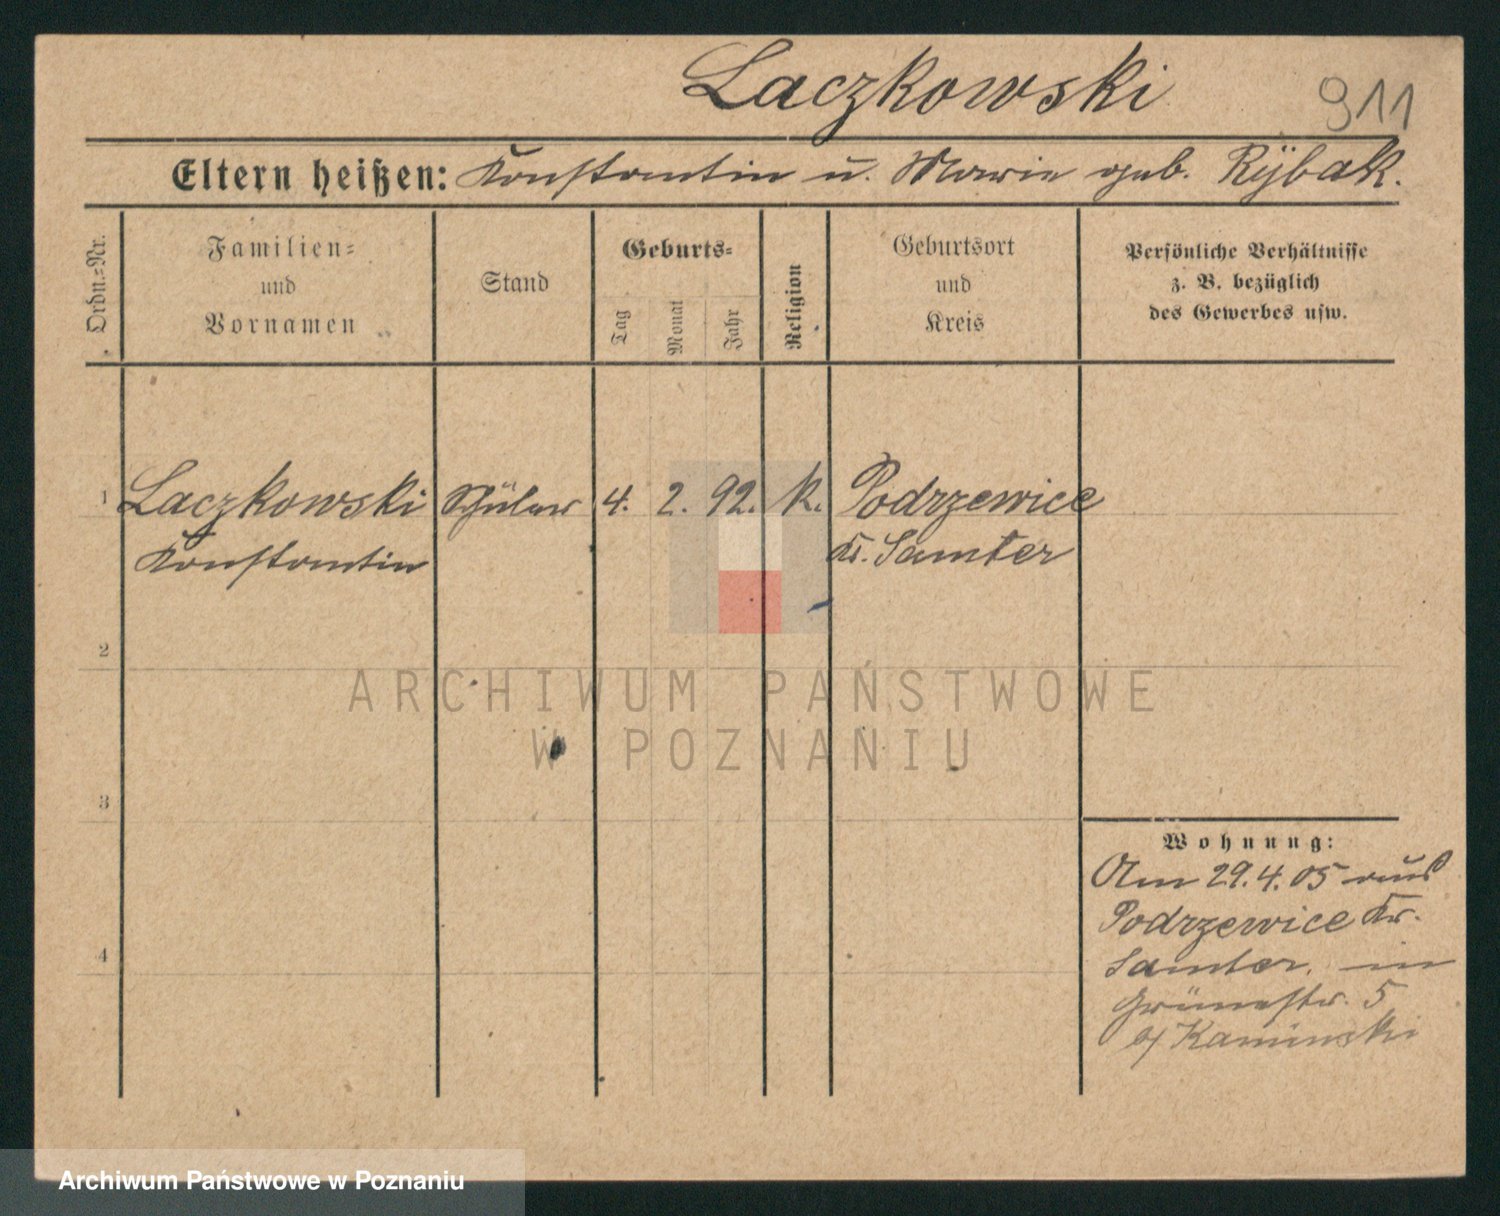 Laczkowski
911
Eltern heißen: Konstantin u. Marie geb. Rybak.
Ordn.=Nr.
Familien=
und
Vornamen
Stand
Geburts=
Tag
Monat
Jahr
Religion
Geburtsort
und
Kreis
Persönliche Verhältnisse
z. B. bezüglich
des Gewerbes usw.
1 Laczkowski Schüler 4. 2. 92. k. Podrzewice
Konstantin Kr. Samter
2
ARCHIWUM PAŃSTWOWE
W POZNANIU
3
Wohnung:
Am 29.4.05 aus
Podrzewice Kr.
4
Samter, in
Grünestr. 5
b/ Kaminski
Archiwum Państwowe w Poznaniu